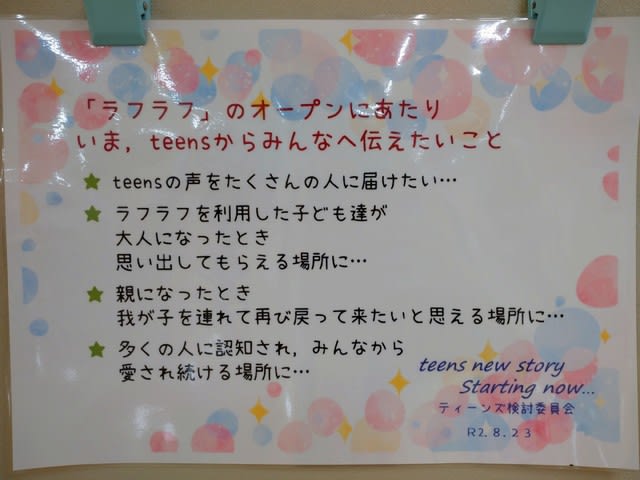 「ラフラフ」のオープンにあたり
いま，teensからみんなへ伝えたいこと
★ teensの声をたくさんの人に届けたい…
★ ラフラフを利用した子ども達が
大人になったとき
思い出してもらえる場所に…
★ 親になったとき
我が子を連れて再び戻って来たいと思える場所に…
★ 多くの人に認知され，みんなから
愛され続ける場所に…
teens new story
Starting now...
ティーンズ検討委員会
R2.8.23